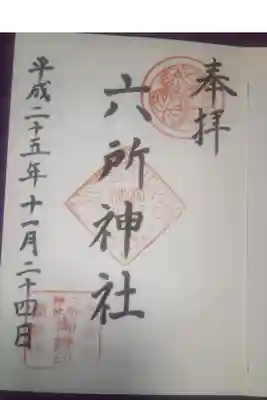 奉拝
六所神社
平成二十五年十一月二十四日